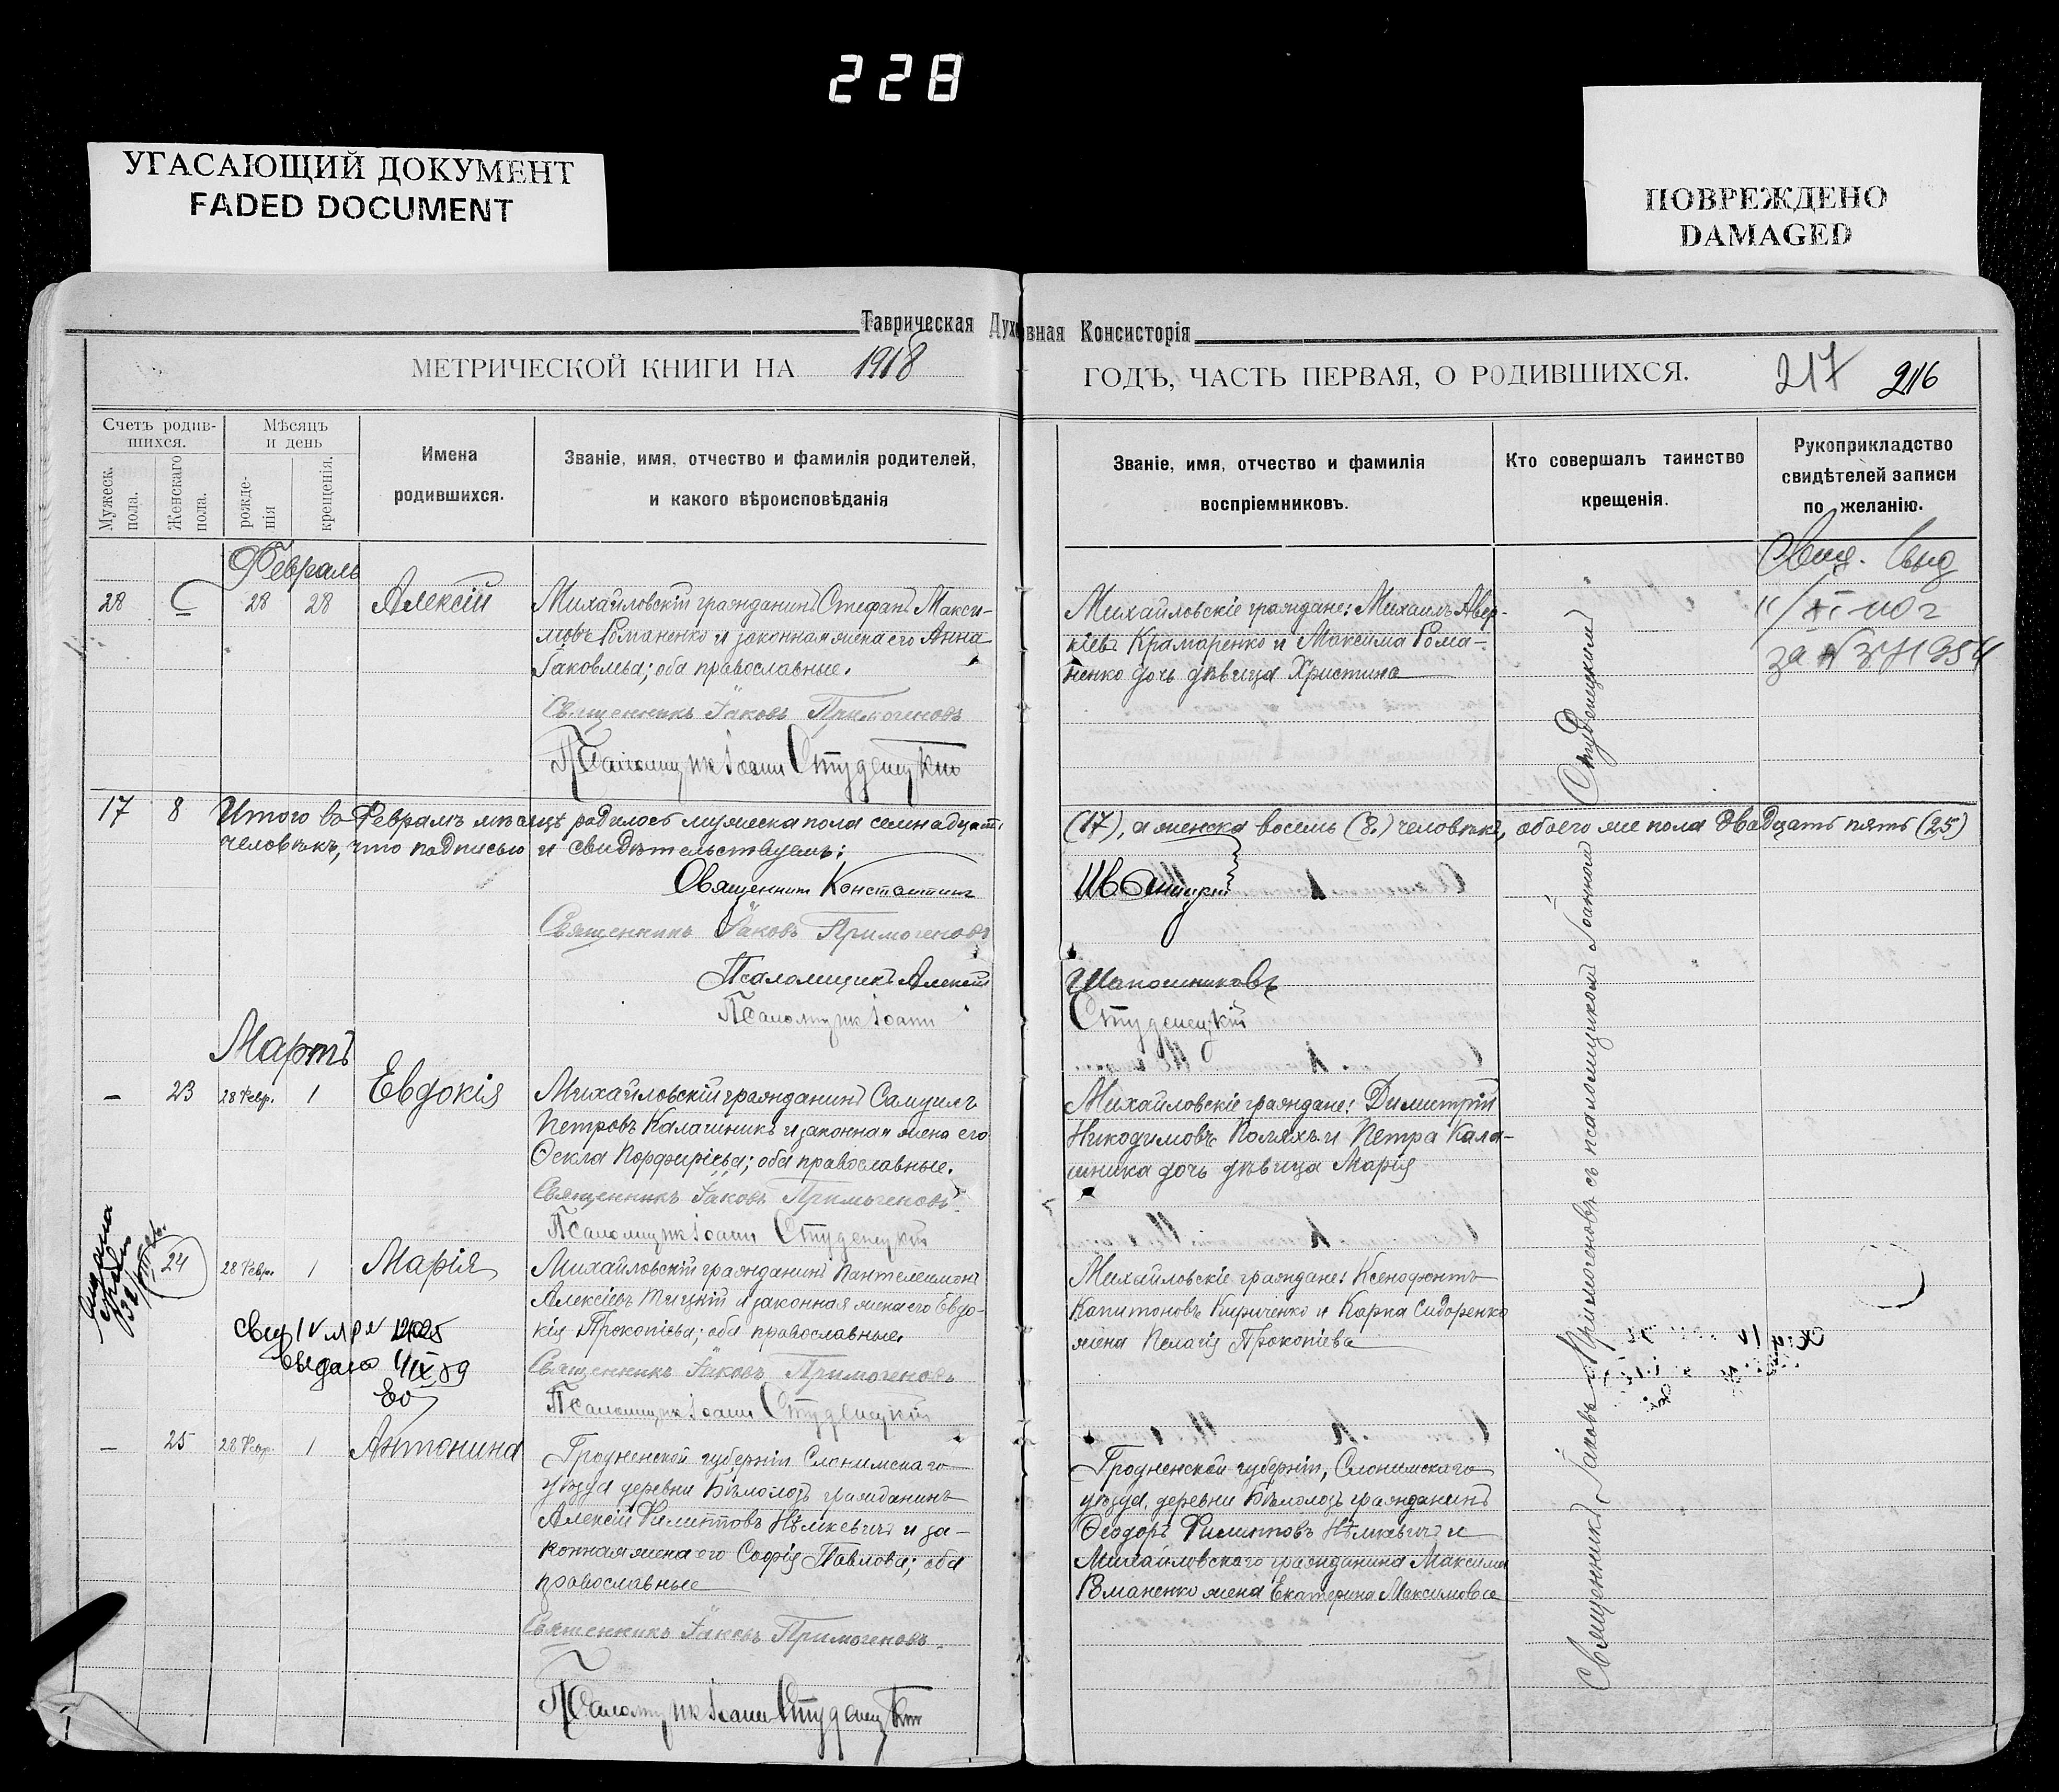 228
УГАСАЮЩИЙ ДОКУМЕНТ
FADED DOCUMENT
ПОВРЕЖДЕНО
DAMAGED
Таврическая Духовная Консисторія
МЕТРИЧЕСКОЙ КНИГИ НА 1918 ГОДЪ, ЧАСТЬ ПЕРВАЯ, О РОДИВШИХСЯ.
217 216
Счетъ родив-
шихся.
Мужеск.
пола.
Женскаго
пола.
Мѣсяцъ
и день
рожде-
нія
крещенія.
Имена
родившихся.
Званіе, имя, отчество и фамилія родителей,
и какого вѣроисповѣданія
Званіе, имя, отчество и фамилія
воспріемниковъ.
Кто совершалъ таинство
крещенія.
Рукоприкладство
свидѣтелей записи
по желанію.
Февраль
28 28 28 Алексій
Михайловскій гражданинъ Стефанъ Макси-
мовъ Романенко и законная жена его Анна
Іаковлева; оба православные.
Священникъ Іаковъ Примогеновъ
Псаломщикъ Іоаннъ Студенецкій
Михайловскіе граждане: Михаилъ Авер-
кіевъ Крамаренко и Максима Рома-
ненко дочь дѣвица Христина
17 8 Итого въ Февралѣ мѣсяцѣ родилось мужеска пола семнадцать (17), а женска восемь (8) человѣкъ, обоего же пола двадцать пять (25)
человѣкъ, что подписью и свидѣтельствуемъ:
Священникъ Константинъ Иваницкій
Священникъ Іаковъ Примогеновъ
Псаломщикъ Алексій Шапошниковъ
Псаломщикъ Іоаннъ Студенецкій
Мартъ
– 23 28 Февр. 1 Евдокія
Михайловскій гражданинъ Самуилъ
Петровъ Калашникъ и законная жена его
Ѳекла Порфиріева; оба православные.
Священникъ Іаковъ Примогеновъ
Псаломщикъ Іоаннъ Студенецкій
Михайловскіе граждане: Димитрій
Никодимовъ Поляхъ и Петра Кала-
шника дочь дѣвица Марія
24 28 Февр. 1 Марія
Михайловскій гражданинъ Пантелеимонъ
Алексіевъ Тицкій и законная жена его Евдо-
кія Прокопіева; оба православные.
Священникъ Іаковъ Примогеновъ
Псаломщикъ Іоаннъ Студенецкій
Михайловскіе граждане: Ксенофонтъ
Капитоновъ Кириченко и Карпа Сидоренко
жена Пелагія Прокопіева
выдано
– 25 28 Февр. 1 Антонина
Гродненской губерніи Слонимскаго
уѣзда деревни Бѣлолозъ гражданинъ
Алексій Филипповъ Нѣмкевичъ и за-
конная жена его Софія Павлова; оба
православные
Священникъ Іаковъ Примогеновъ
Псаломщикъ Іоаннъ Студенецкій
Гродненской губерніи, Слонимскаго
уѣзда, деревни Бѣлолозъ гражданинъ
Ѳеодоръ Филипповъ Нѣмкевичъ и
Михайловскаго гражданина Максима
Романенко жена Екатерина Максимовна
Священникъ Іаковъ Примогеновъ съ псаломщикомъ Іоанномъ Студенецкимъ